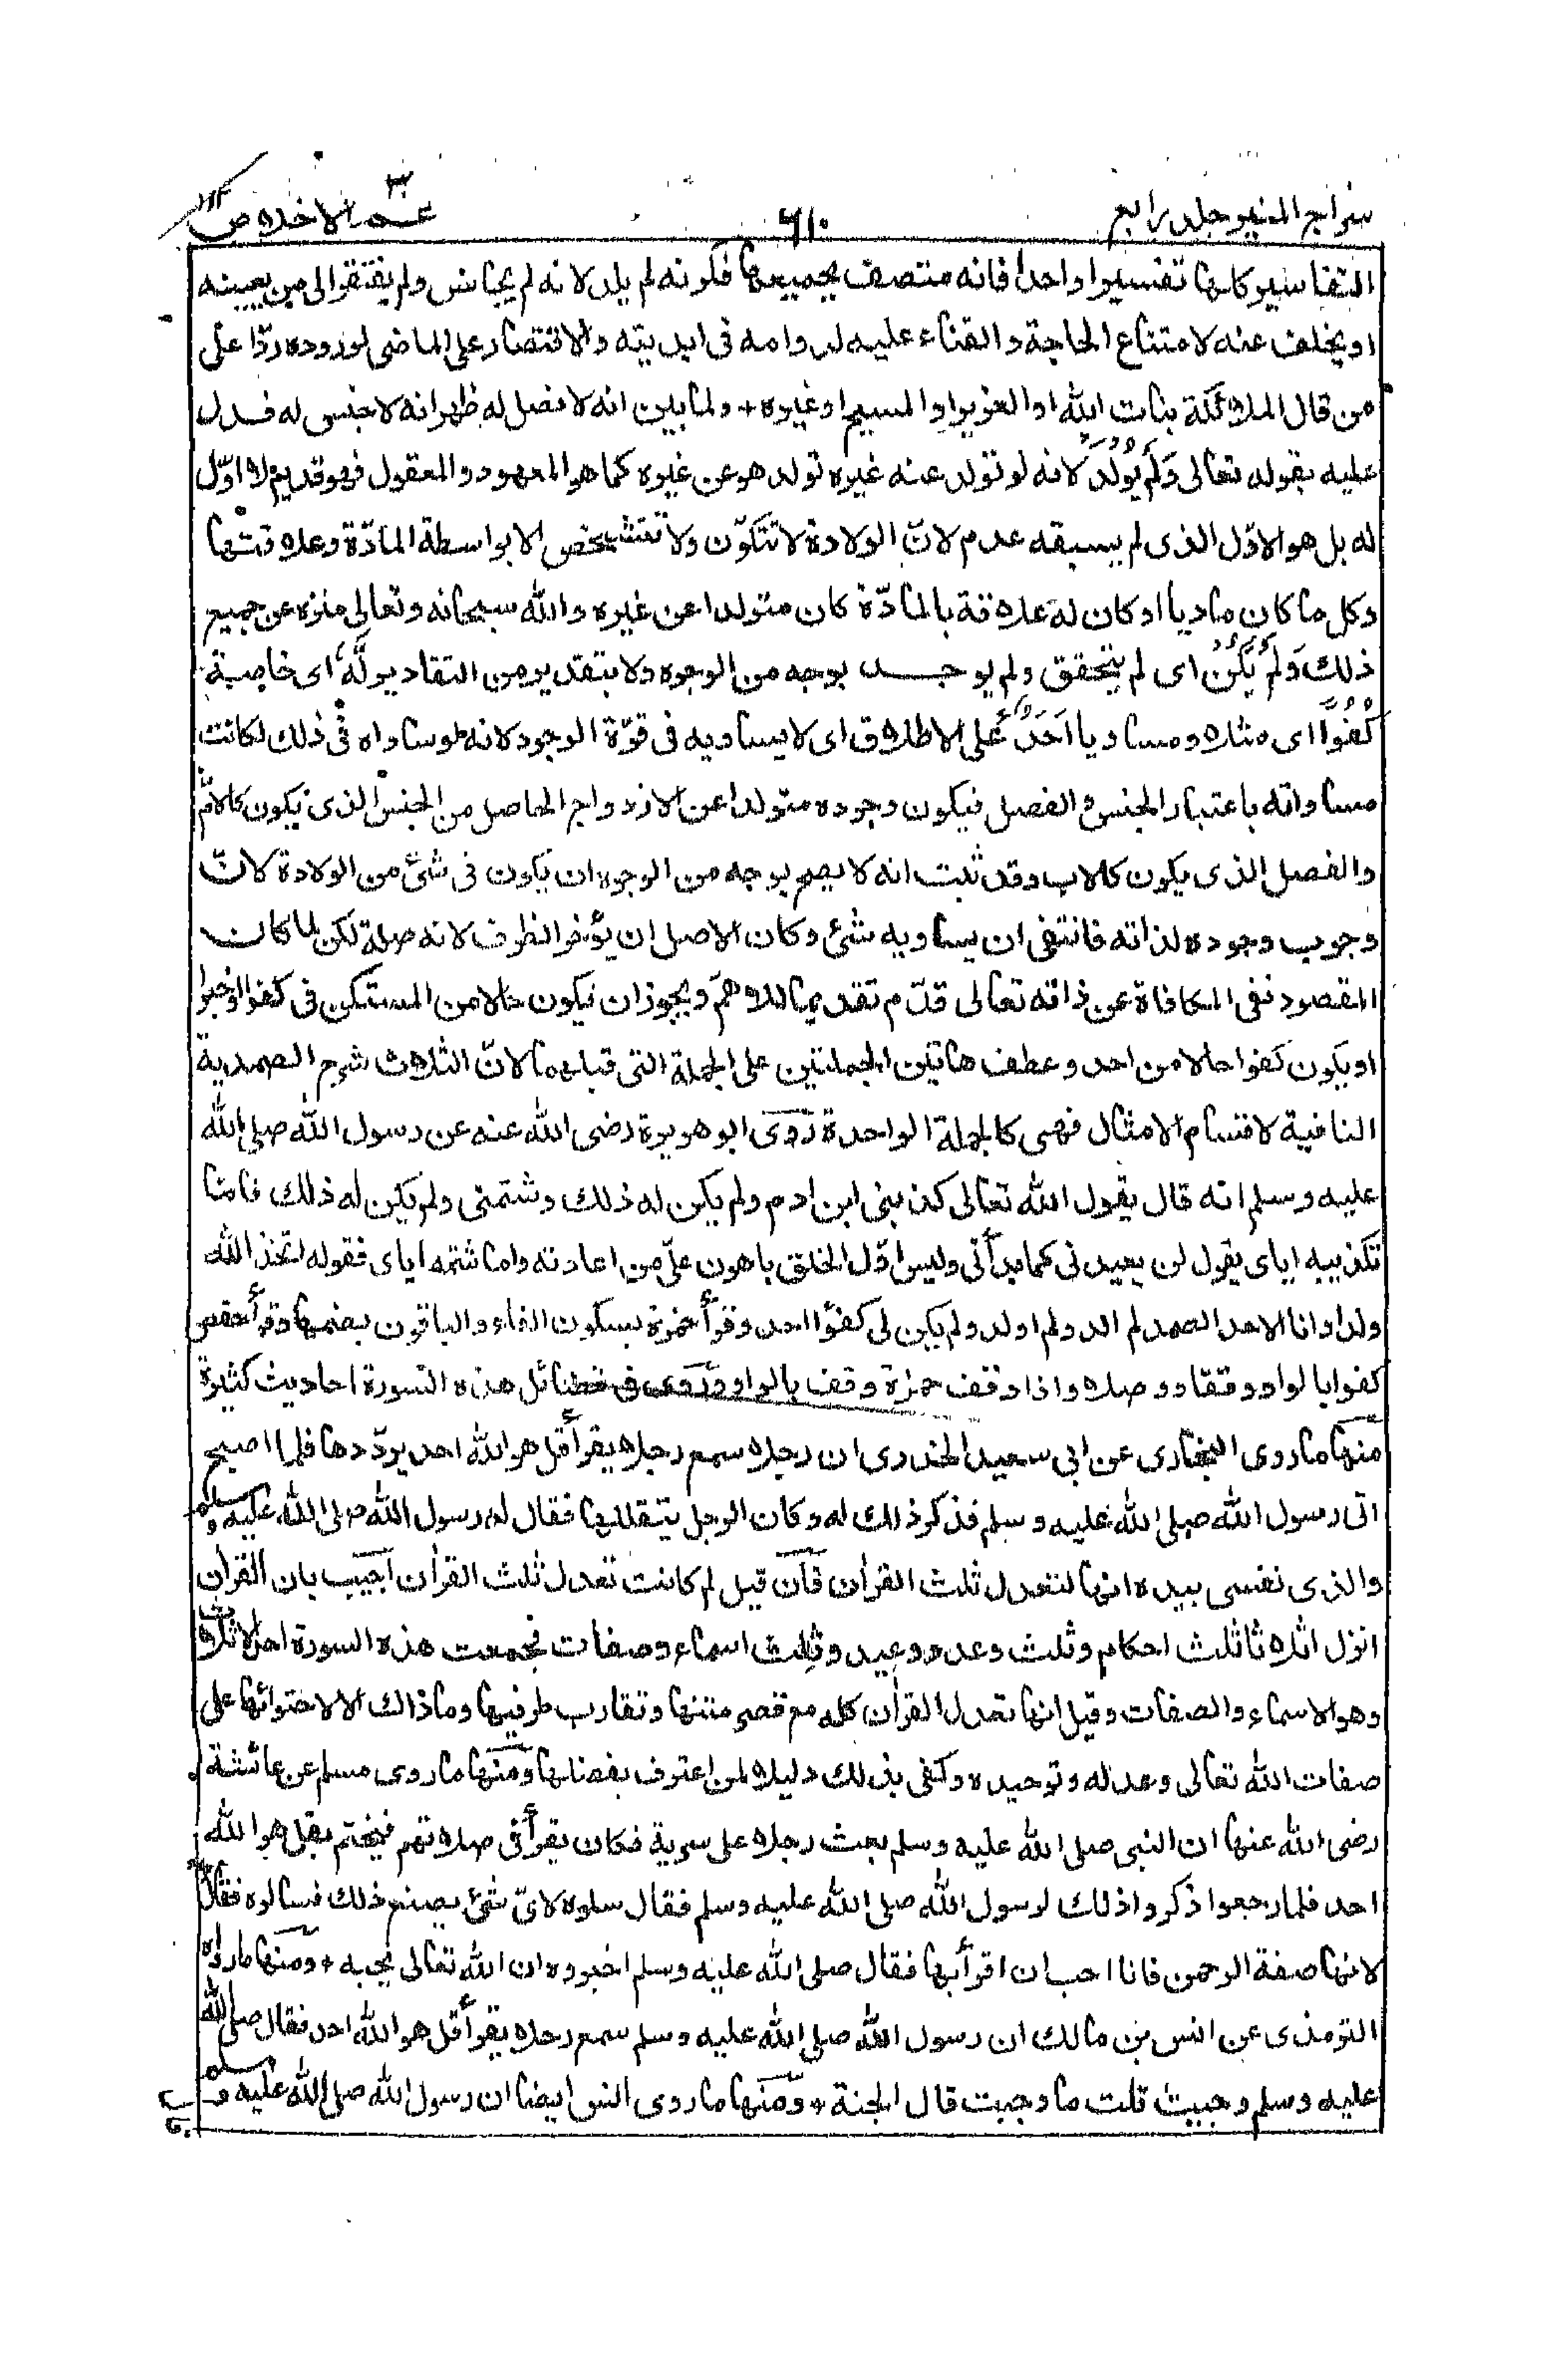 سراج المنير جلد رابع ٦١٠ عـــه الاخلاص ١١٢
التفاسير كلها تفسيرا واحدا فانه متصف بجميعها فكونه لم يلد لانه لم يجانس ولم يفتقر الى من يعينه
او يخلف عنه لامتناع الحاجة والفناء عليه لدوامه فى ابديته والاقتصار على الماضى لوروده ردّا على
من قال الملائكة بنات الله او العزير او المسيح او غيره + ولما بين انه لا فصل له ظهر انه لا جنس له فدل
عليه بقوله تعالى وَلَمْ يُولَدْ لانه لو تولد عنه غيره تولد هو عن غيره كما هو المعهود والمعقول فهو قديم لا اوّل
له بل هو الاوّل الذى لم يسبقه عدم لانّ الولادة لا تتكوّن ولا تتشخص الا بواسطة المادّة وعلاقتها
وكل ما كان ماديا او كان له علاقة بالمادّة كان متولدا عن غيره والله سبحانه وتعالى منزه عن جميع
ذلك وَلَمْ يَكُنْ اى لم يتحقق ولم يوجـــد بوجه من الوجوه ولا بتقدير من التقادير لَّهُ اى خاصة
كُفُوًا اى مثلا ومساويا اَحَدٌ على الاطلاق اى لا يساويه فى قوّة الوجود لانه لو ساواه فى ذلك لكانت
مساواته باعتبار الجنس والفصل فيكون وجوده متولدا عن الازدواج الحاصل من الجنس الذى يكون كالامّ
والفصل الذى يكون كالاب وقد ثبت انه لا يصح بوجه من الوجوه ان يكون فى شئ من الولادة لانّ
وجوب وجوده لذاته فانتفى ان يساويه شئ وكان الاصل ان يؤخر الظرف لانه صلة لكن لما كان
المقصود نفى المكافاة عن ذاته تعالى قدّم تقديما للاهمّ ويجوز ان يكون حالا من المستكن فى كفوا او خبرا
او يكون كفوا حالا من احد وعطف هاتين الجملتين على الجملة التى قبلهما لانّ الثلاث شرح الصمدية
النافية لاقسام الامثال فهى كالجملة الواحدة رَوَى ابو هريرة رضى الله عنه عن رسول الله صلى الله
عليه وسلم انه قال يقول الله تعالى كذبنى ابن ادم ولم يكن له ذلك وشتمنى ولم يكن له ذلك فاما
تكذيبه اياى يقول لن يعيدنى كما بدأنى وليس اوّل الخلق باهون علىّ من اعادته واما شتمه اياى فقوله اتخذ الله
ولدا وانا الاحد الصمد لم الد ولم اولد ولم يكن لى كفؤا احد وقرأ حمزة بسكون الفاء والباقون بضمها وقرأ حفص
كفوا بالواو وقفا ووصلا واذا وقف حمزة وقف بالواو ورَوى فى فضائل هذه السورة احاديث كثيرة
منها ما روى البخارى عن ابى سعيد الخدرى ان رجلا سمع رجلا يقرأ قل هو الله احد يردّدها فلما اصبح
اتى رسول الله صلى الله عليه وسلم فذكر ذلك له وكان الرجل يتقللها فقال له رسول الله صلى الله عليه وسلم
والذى نفسى بيده انها لتعدل ثلث القرأن فان قيل لم كانت تعدل ثلث القرأن اجيب بان القرأن
انزل اثلاثا ثلث احكام وثلث وعد ووعيد وثلث اسماء وصفات فجمعت هذه السورة احد الاثلاث
وهو الاسماء والصفات وقيل انها تعدل القرأن كله مع قصر متنها وتقارب طرفيها وما ذالك الا لاحتوائها على
صفات الله تعالى وعدله وتوحيده وكفى بذلك دليلا لمن اعترف بفضلها ومنها ما روى مسلم عن عائشة
رضى الله عنها ان النبى صلى الله عليه وسلم بعث رجلا على سرية فكان يقرأ فى صلاتهم فيختم بقل هو الله
احد فلما رجعوا ذكروا ذلك لرسول الله صلى الله عليه وسلم فقال سلوه لاىّ شئ يصنع ذلك فسالوه فقال
لانها صفة الرحمن فانا احب ان اقرأ بها فقال صلى الله عليه وسلم اخبروه ان الله تعالى يحبه + ومنها ما رواه
الترمذى عن انس بن مالك ان رسول الله صلى الله عليه وسلم سمع رجلا يقرأ قل هو الله احد فقال صلى الله
عليه وسلم وجبت قلت ما وجبت قال الجنة + ومنها ما روى انس ايضا ان رسول الله صلى الله عليه وسلم